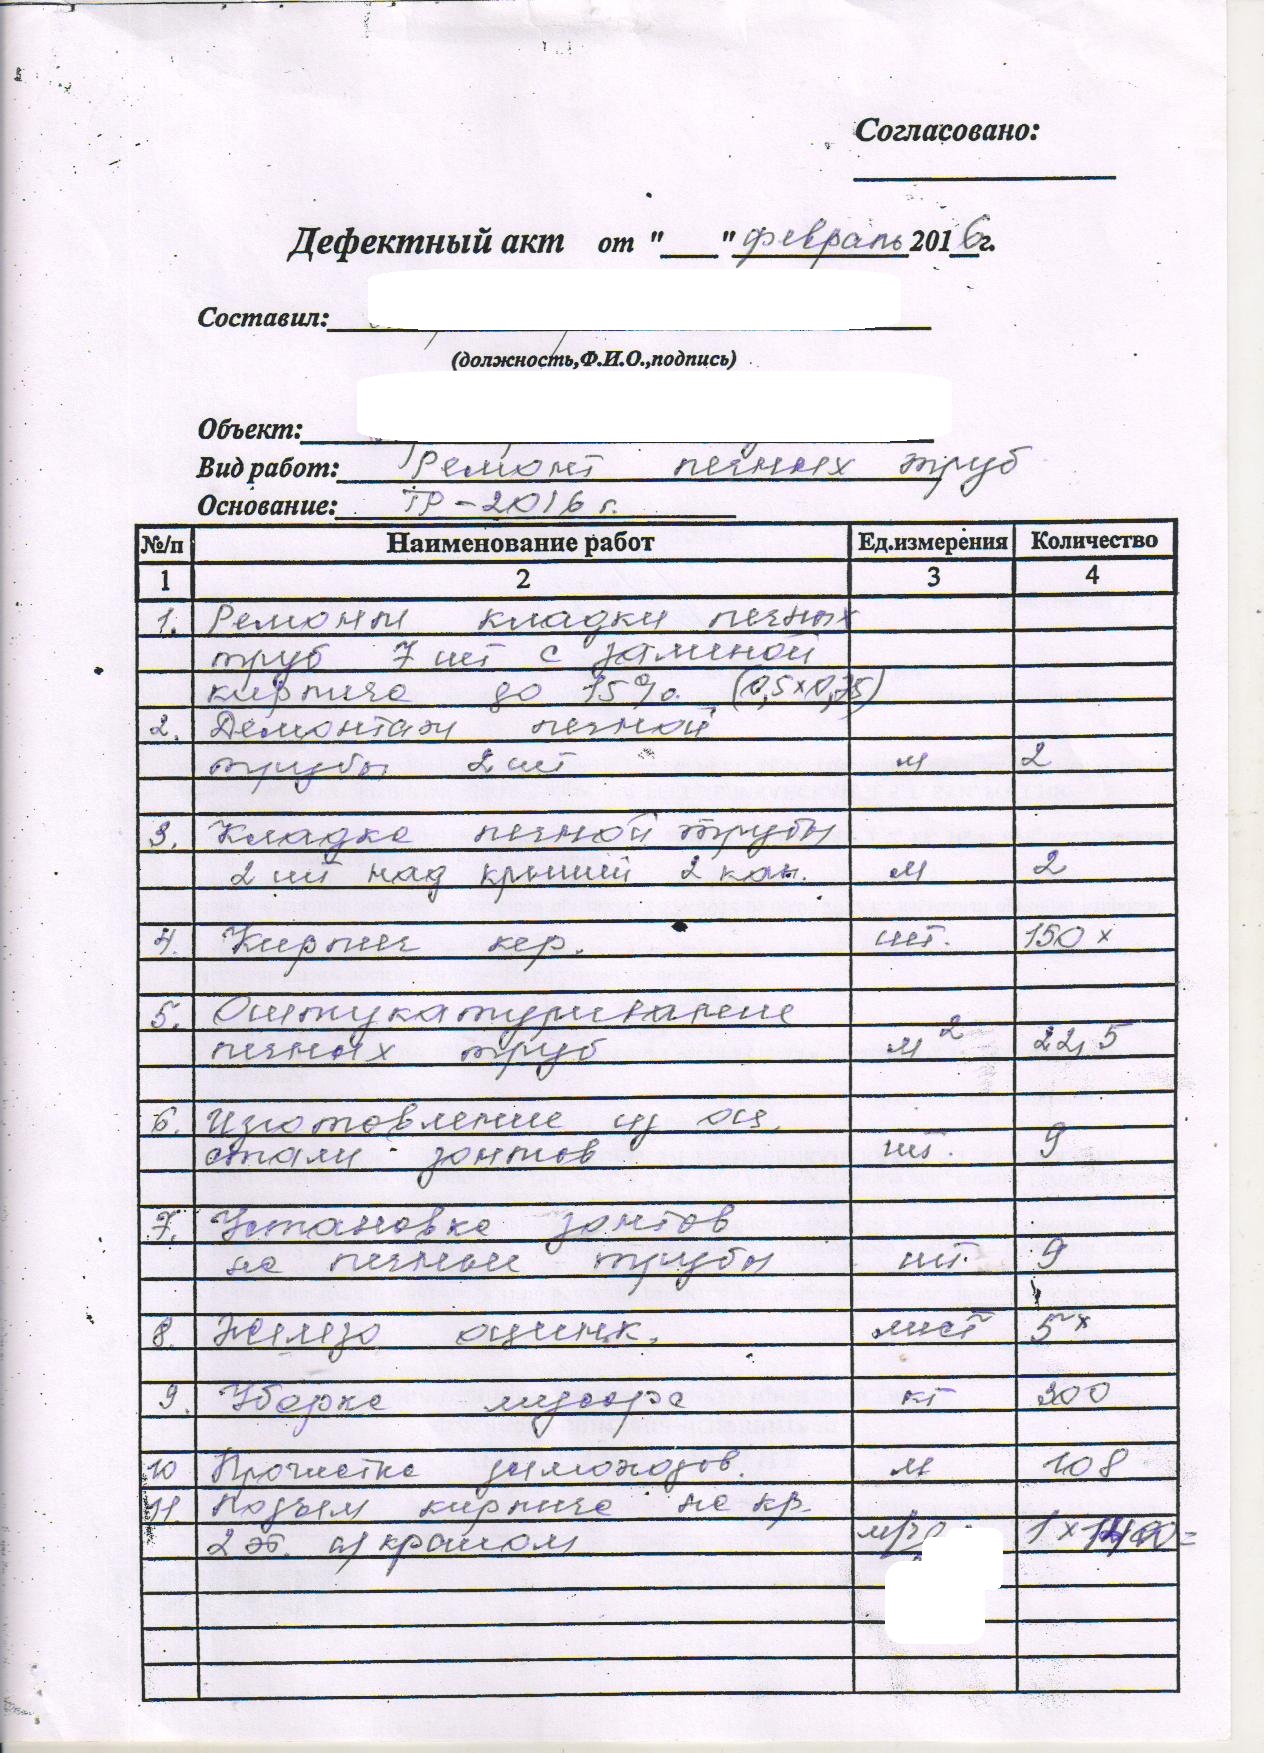 Согласовано:
Дефектный акт от "___" февраль 2016 г.
Составил:
(должность,Ф.И.О.,подпись)
Объект:
Вид работ: Ремонт печных труб
Основание: ТР-2016 г.
№/п Наименование работ Ед.измерения Количество
1 2 3 4
1. Ремонт кладки печных
труб 7 шт с заменой
кирпича до 15%. (0,5х0,75)
2. Демонтаж печной
трубы 2 шт м 2
3. Кладка печной трубы
2 шт над крышей 2 кан. м 2
4. Кирпич кер. шт. 150 х
5. Оштукатуривание
печных труб м2 22,5
6. Изготовление из оц.
стали зонтов шт. 9
7. Установка зонтов
на печные трубы шт. 9
8. Железо оцинк. лист 5 х
9. Уборка мусора кг 300
10 Прочистка дымоходов. м 108
11. Подъем кирпича на кр.
2 эт. а/краном 1 х